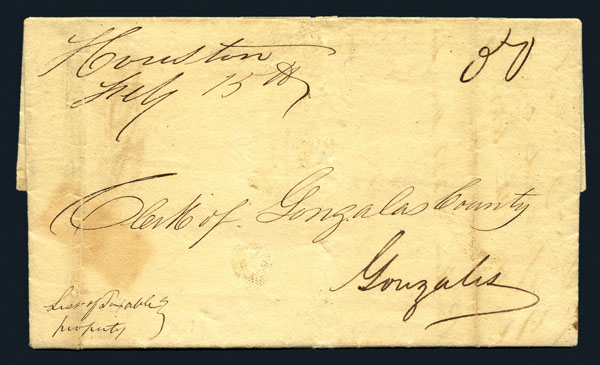 Houston 50
15th
Clerk of Gonzalas County
Gonzales
List of Taxable
property